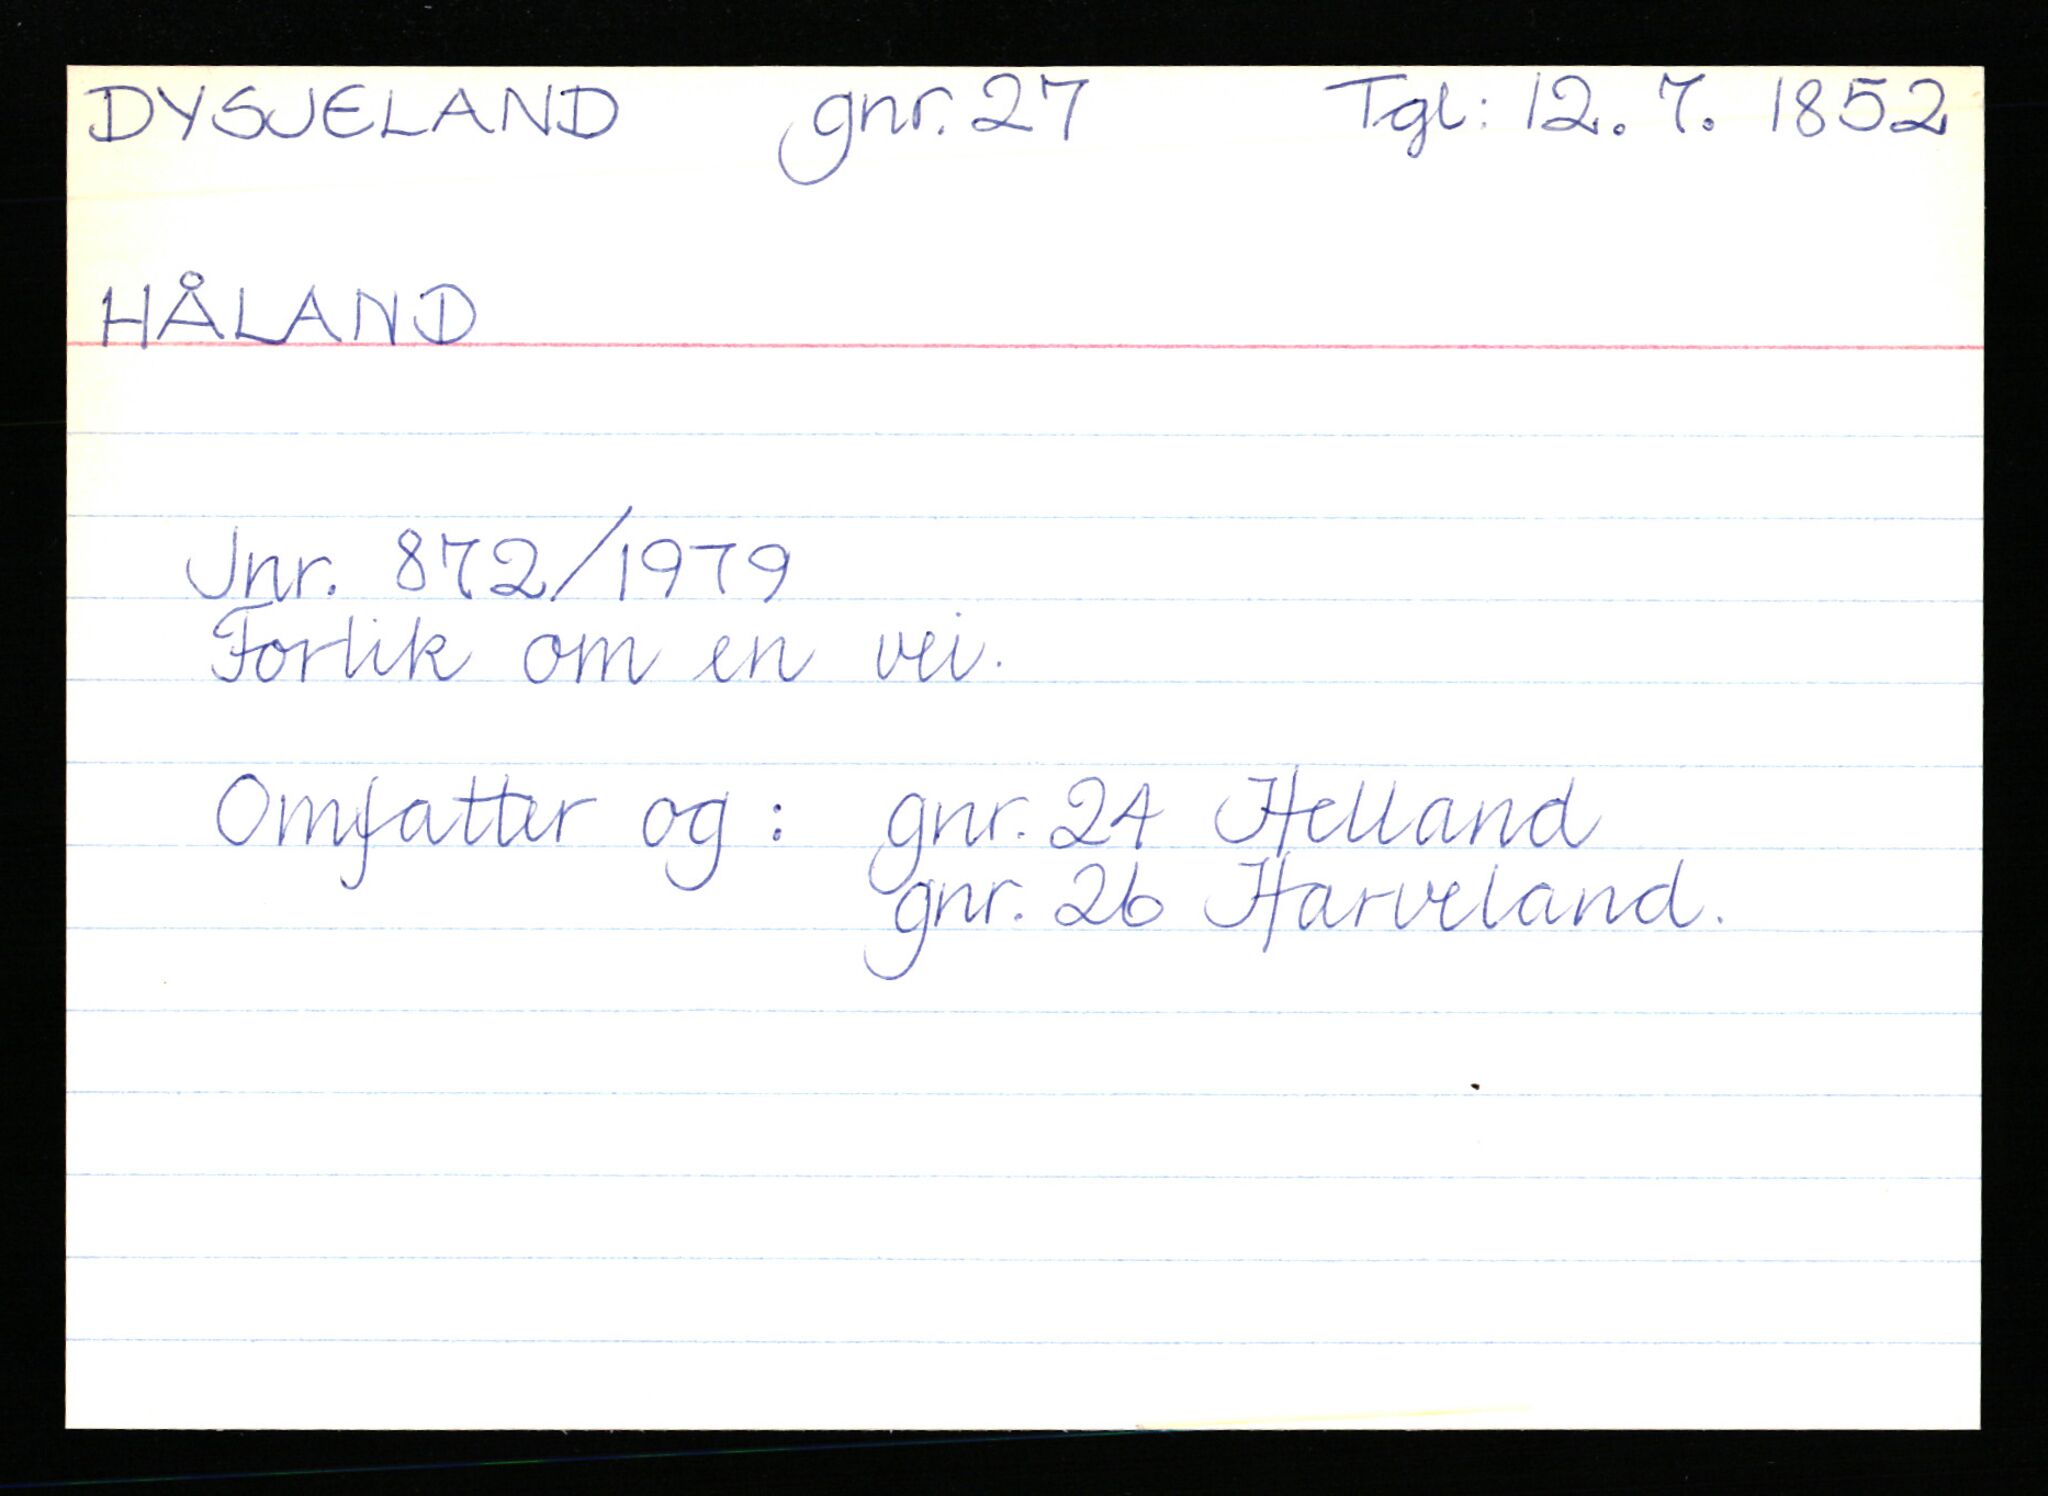 DYSJELAND gnr. 27 Tgl: 12. 7. 1852
HÅLAND
Jnr. 872/1979
Forlik om en vei.
Omfatter og: gnr. 24 Helland
gnr. 26 Harveland.